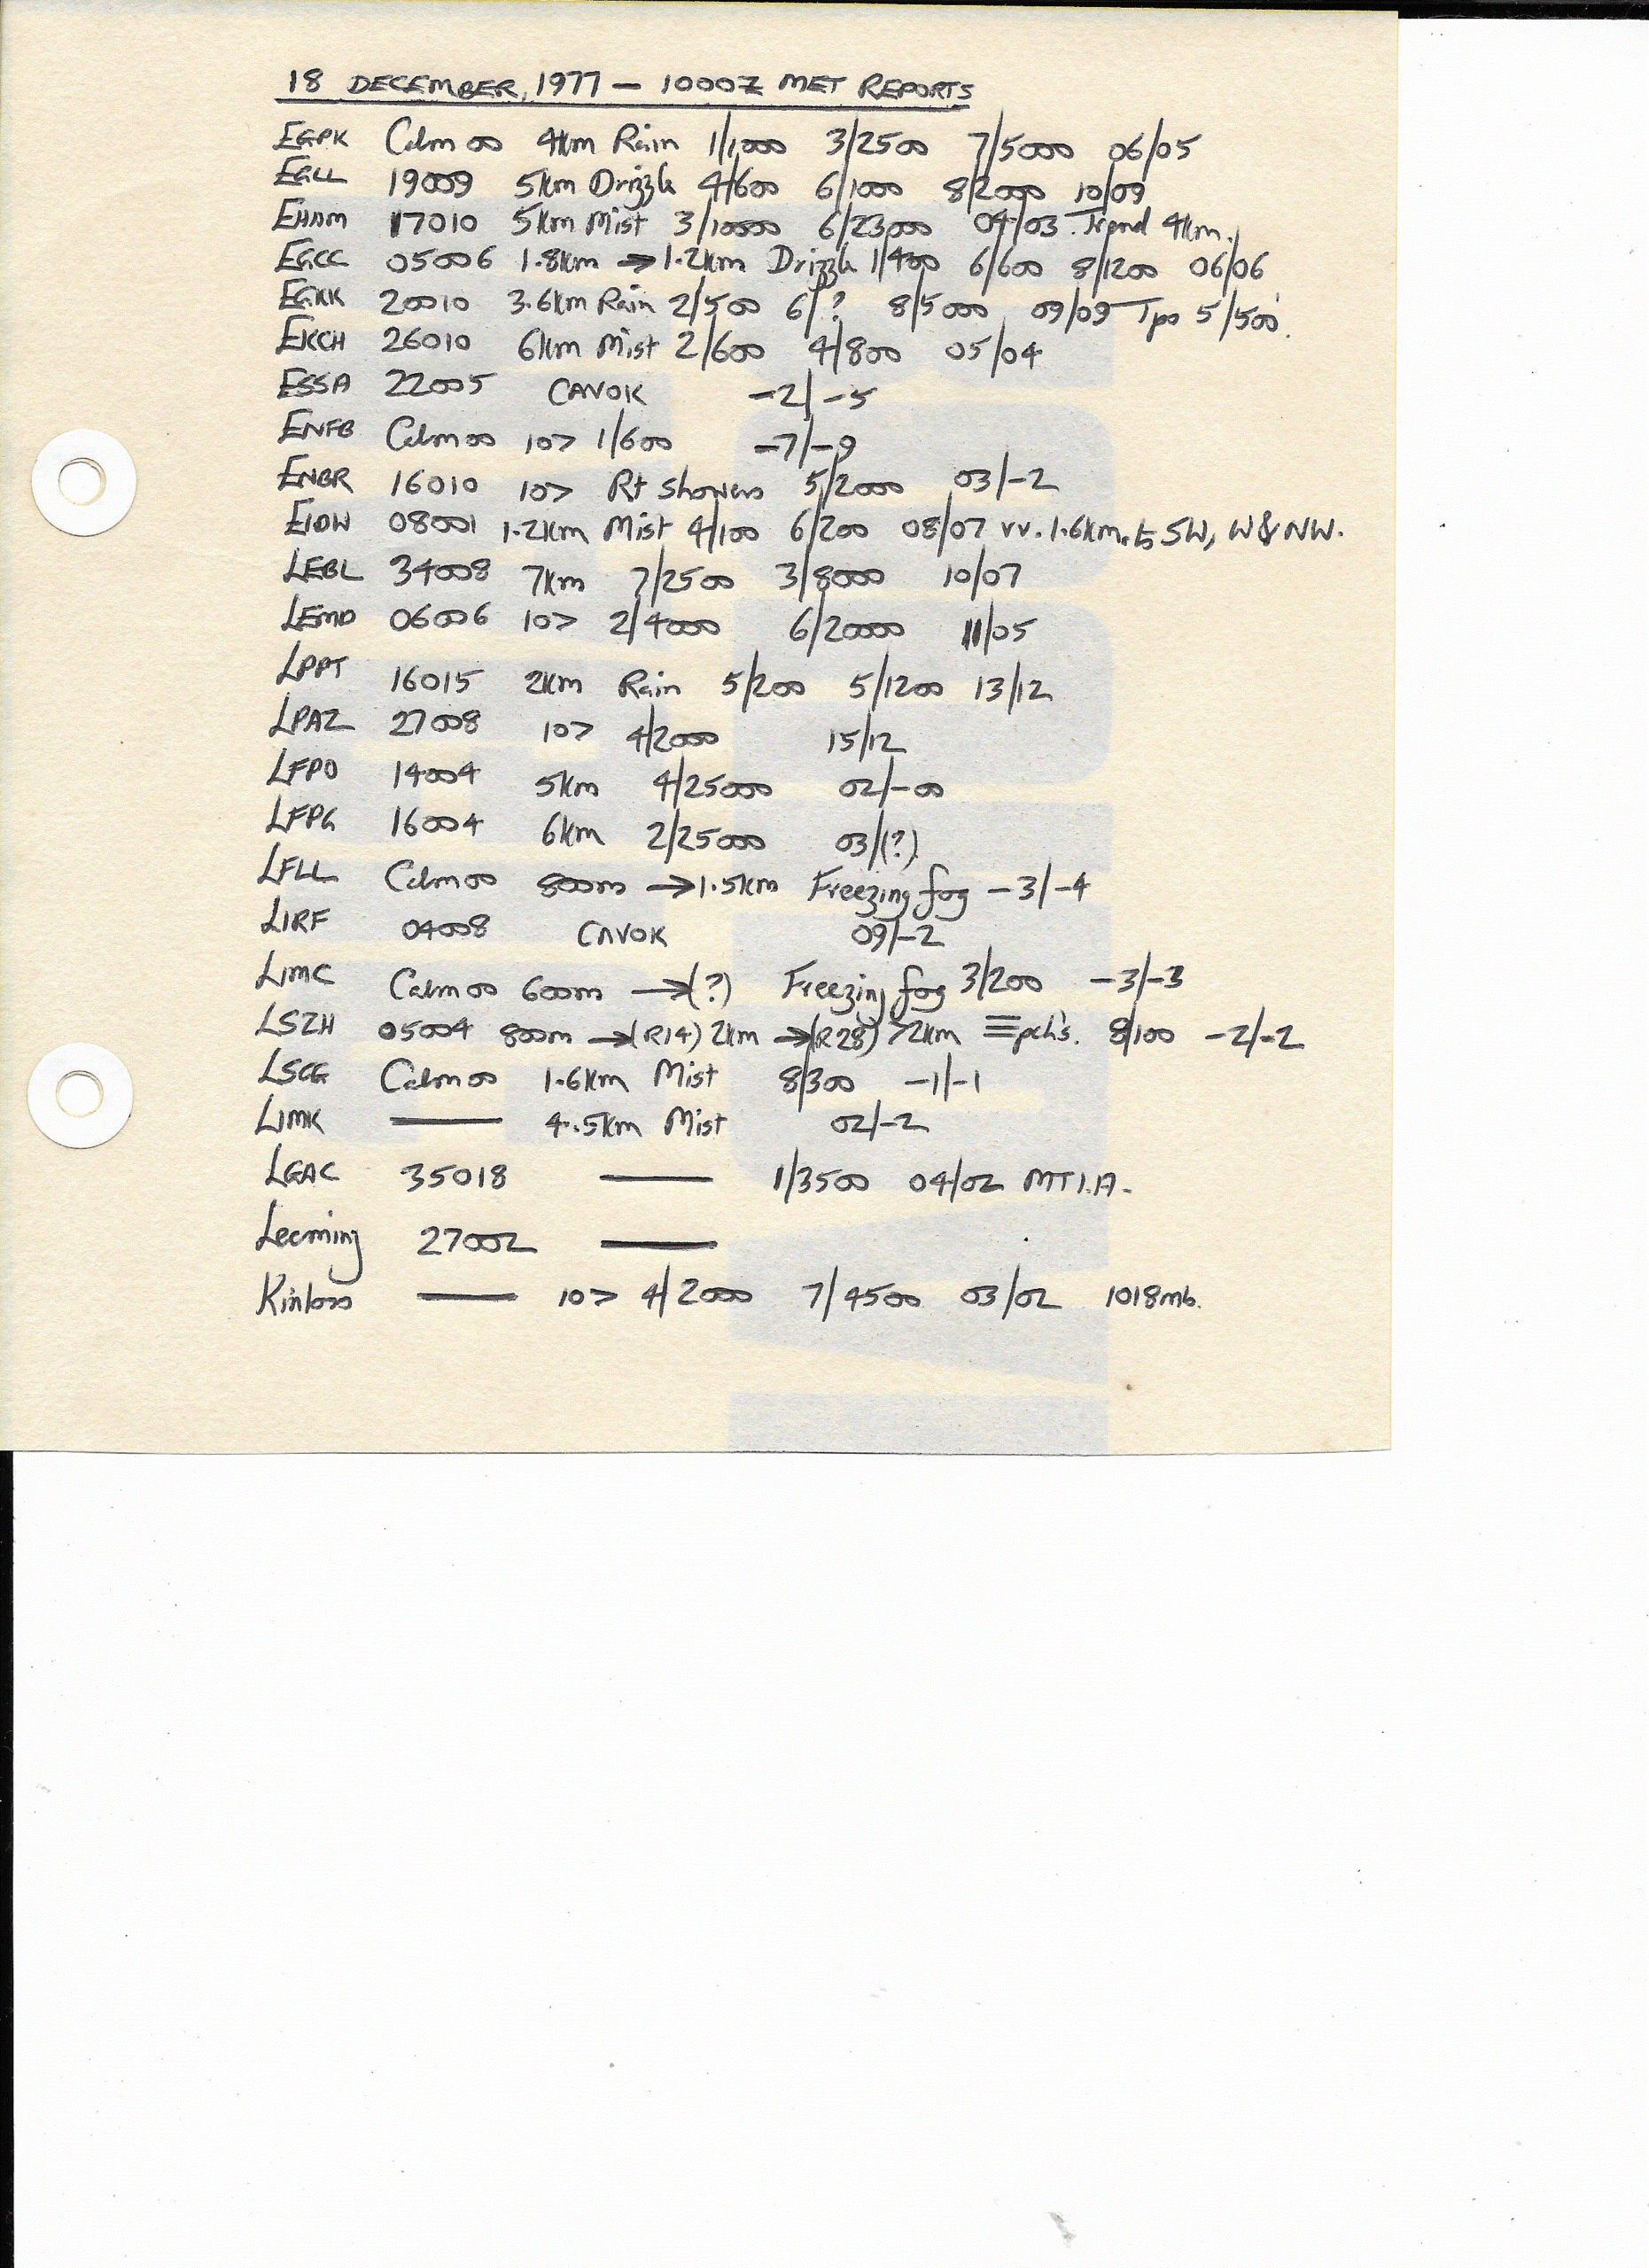 18 DECEMBER, 1977 – 1000Z MET REPORTS
EGPK Calm 00 4km Rain 1/1000 3/2500 7/5000 06/05
EGLL 19009 5km Drizzle 4/600 6/1000 8/2000 10/09
EHAM 17010 5km Mist 3/10000 6/23000 04/03. Trend 4km.
EGCC 05006 1.8km → 1.2km Drizzle 1/400 6/600 8/1200 06/06
EGKK 20010 3.6km Rain 2/500 6/? 8/5000 09/09 Tpo 5/500.
EKCH 26010 6km Mist 2/600 4/800 05/04
ESSA 22005 CAVOK -2/-5
ENFB Calm 00 10> 1/600 -7/-9
ENBR 16010 10> Rt Showers 5/2000 03/-2
EIDW 08001 1.2km Mist 4/100 6/200 08/07 vv. 1.6km. to SW, W & NW.
LEBL 34008 7km 7/2500 3/8000 10/07
LEMD 06006 10> 2/4000 6/20000 11/05
LPPT 16015 2km Rain 5/200 5/1200 13/12
LPAZ 27008 10> 4/2000 15/12
LFPO 14004 5km 4/25000 02/-00
LFPG 16004 6km 2/25000 03/(?)
LFLL Calm 00 800m → 1.5km Freezing fog -3/-4
LIRF 04008 CAVOK 09/-2
LIMC Calm 00 600m → (?) Freezing fog 3/200 -3/-3
LSZH 05004 800m → (R14) 2km → (R28) >2km ≡ pch's. 8/100 -2/-2
LSGG Calm 00 1.6km Mist 8/300 -1/-1
LIMK — 4.5km Mist 02/-2
LGAC 35018 — 1/3500 04/02 MT I.A.
Leeming 27002 —
Kinloss — 10> 4/2000 7/4500 03/02 1018mb.